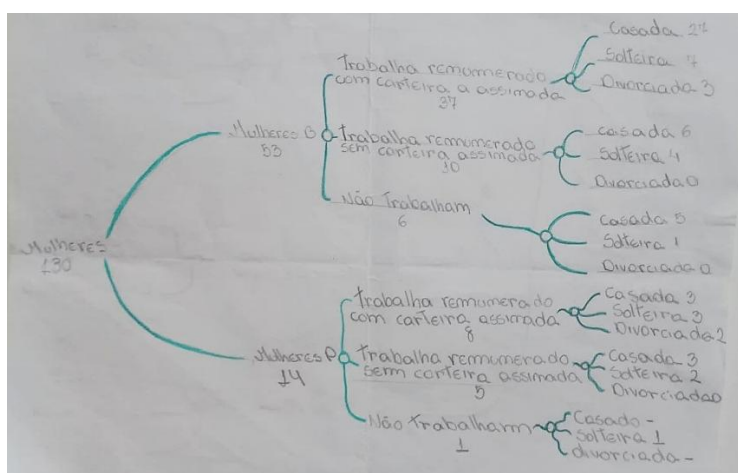 Mulheres
130
Mulheres B
53
Trabalha remunerado
com carteira a assimada
37
Casada 27
Solteira 7
Divorciada 3
Trabalha remumerado
sem carteira assimada
10
casada 6
Solteira 4
Divorciada 0
Não Trabalham
6
Casada 5
Solteira 1
Divorciada 0
Mulheres P
14
Trabalha remumerado
com carteira assimada
8
Casada 3
Solteira 3
Divorciada 2
Trabalha remumerado
sem carteira assimada
5
Casada 3
Solteira 2
Divorciada0
Não trabalham
1
Casado -
Solteira 1
divorciada -